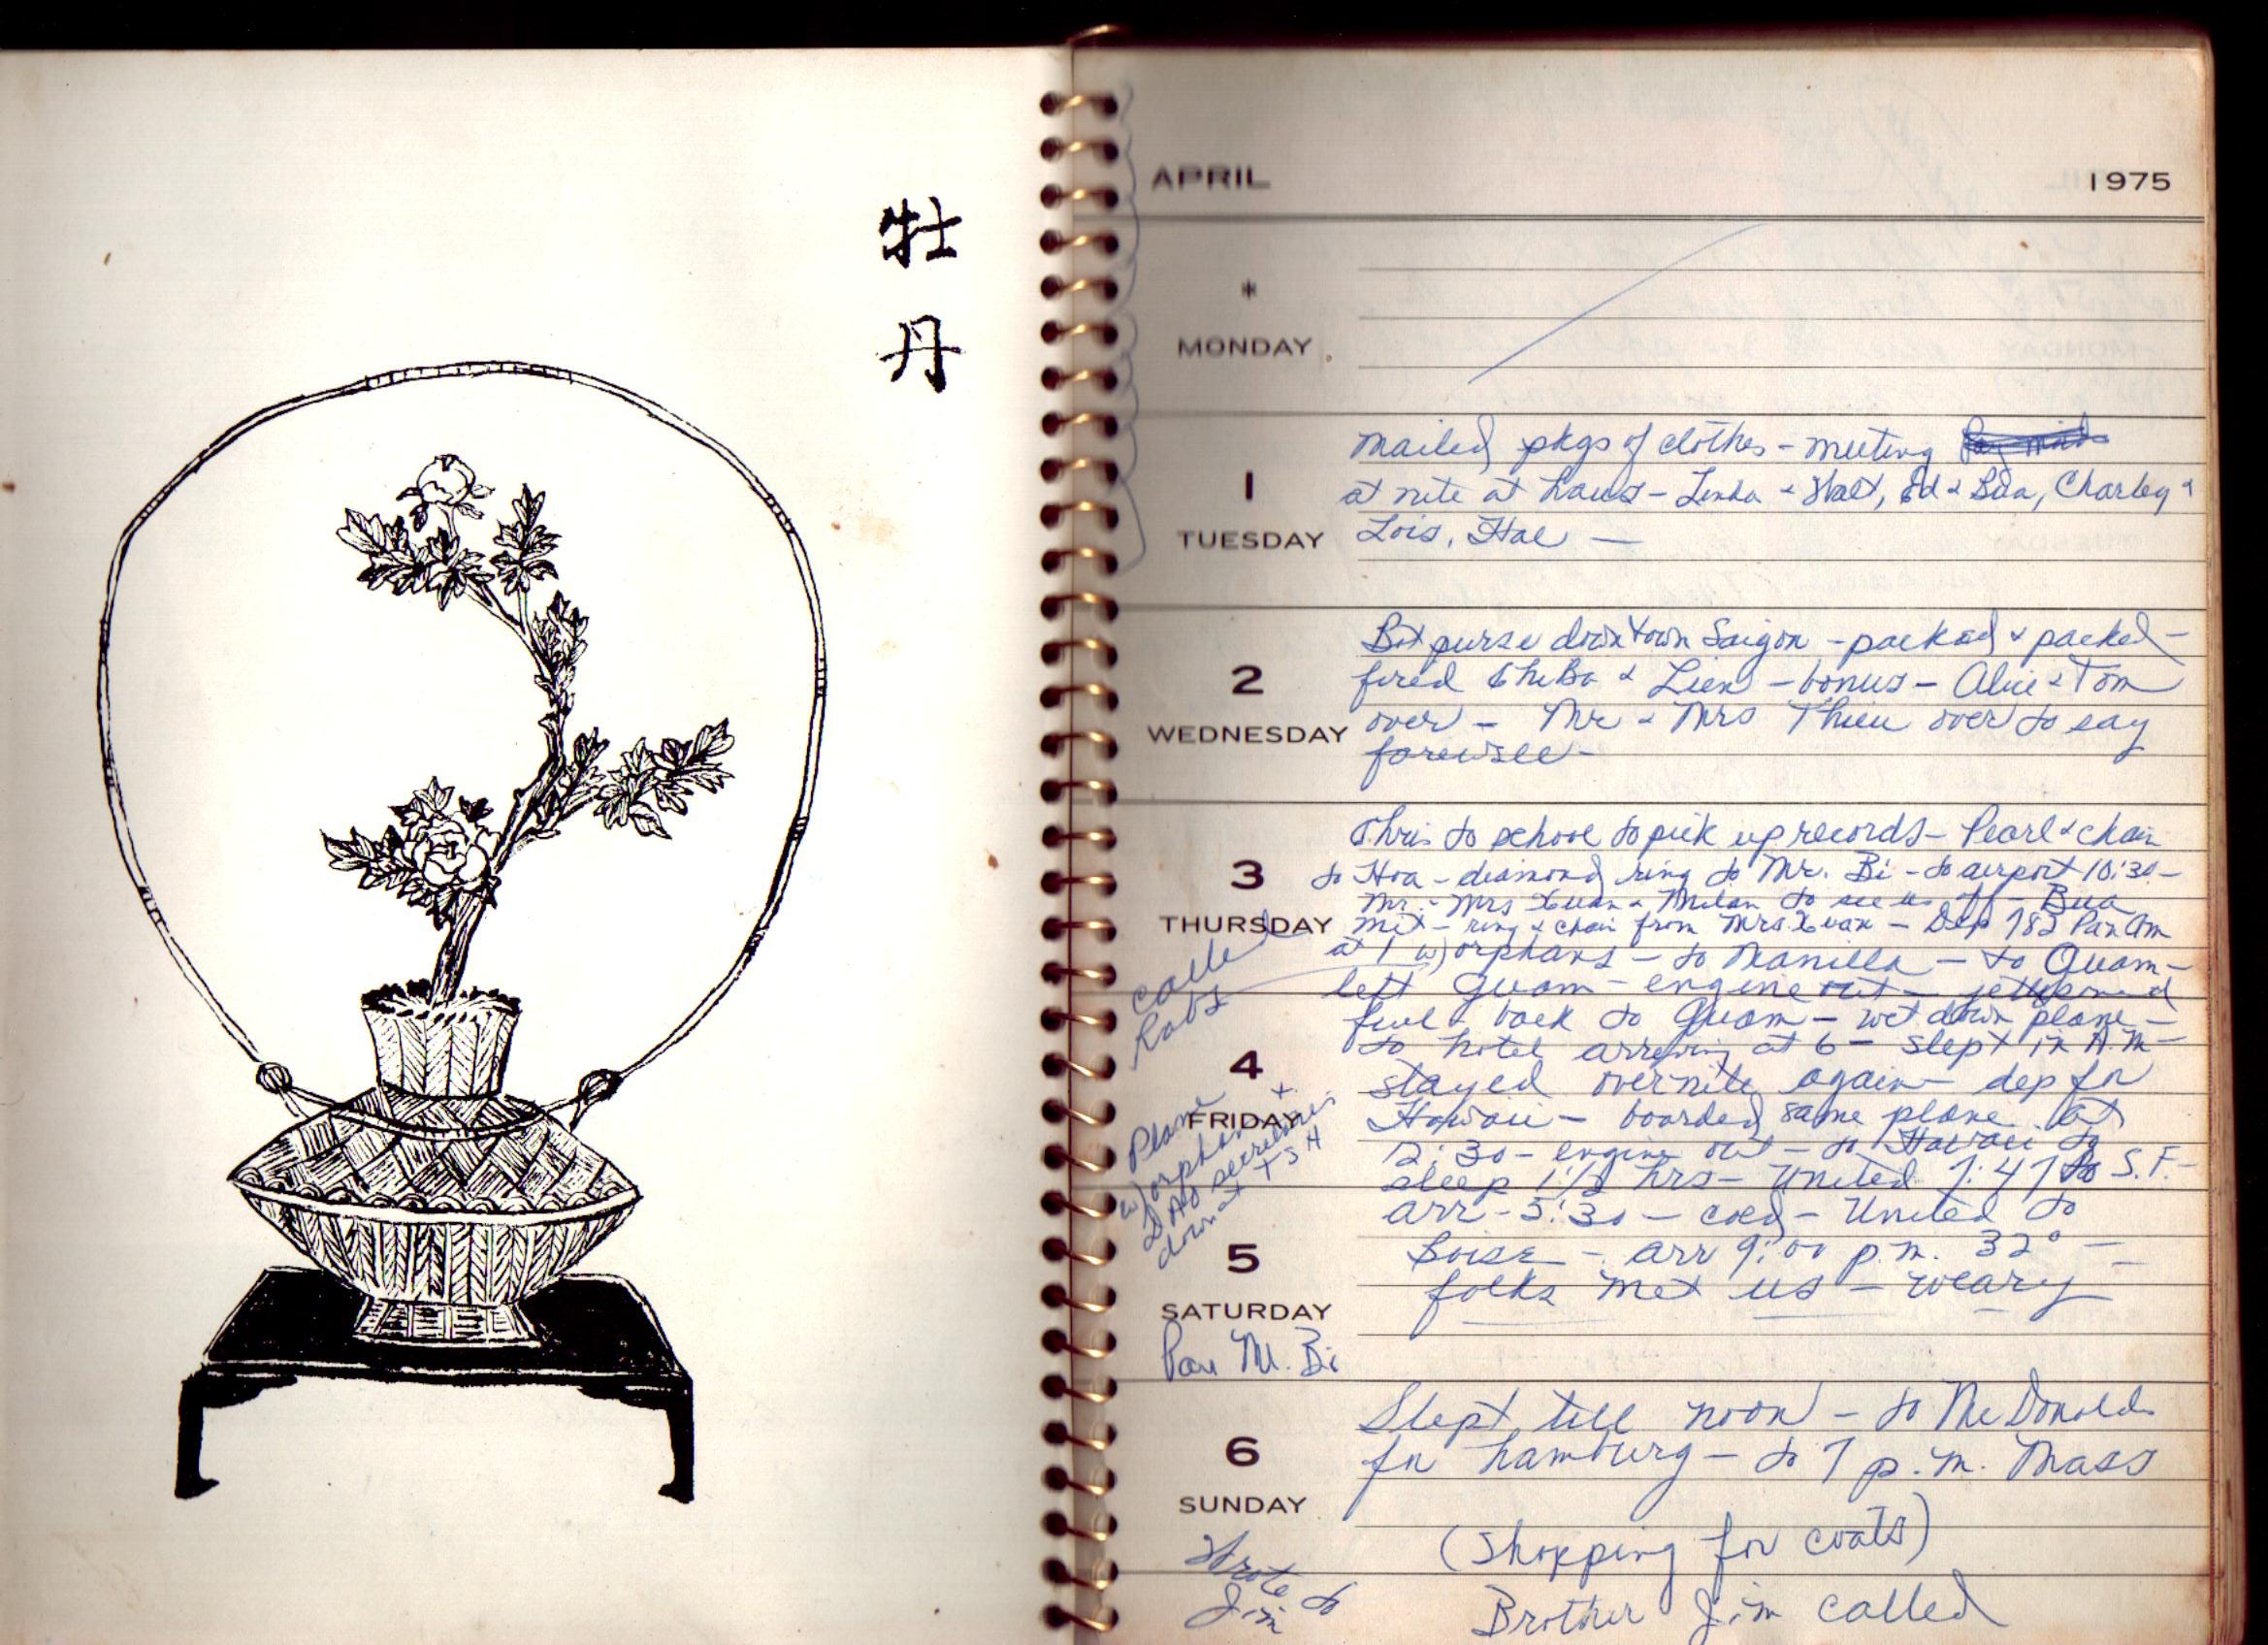 牡
丹
APRIL 1975
*
MONDAY
1
TUESDAY
mailed pkgs of clothes - meeting
at nite at - Linda & Walt, Ed & Bua, Charley &
Lois, Hal —
2
WEDNESDAY
Bot purse downtown Saigon - packed & packed -
fired Chi Ba & Lien - bonus - Alice & Tom
over - Mr & Mrs Thieu over to say
farewell -
3
THURSDAY
Chris to school to pick up records - Pearl & chain
to Hoa - diamond ring to Mr. Bi - to airport 10:30 -
Mr. & Mrs Xuan & Milan to see us off - Bua
met - ring & chain from Mrs. Xuan - Dep 782 Pan Am
at 1 w/orphans - to Manilla - to Guam -
left Guam - engine out - jettisoned
fuel - back to Guam - wet down plane -
to hotel arriving at 6 - slept in A.M -
Called
Robs
4
FRIDAY
stayed overnite again - dep for
Hawaii - boarded same plane at
2:30 - engine out - to Hawaii to
sleep 1 1/2 hrs - United 7:47 to S.F. -
Plane
w/orphans &
DAO secretaries
down at TSN
5
SATURDAY
arr - 5:30 - cold - United to
Boise - arr 9:00 p.m. 32° -
folks met us - weary
M. Bi
6
SUNDAY
Slept till noon - to McDonalds
for hamburg - to 7 p.m. Mass
(Shopping for coats)
Brother Jim called
Wrote to
Jim